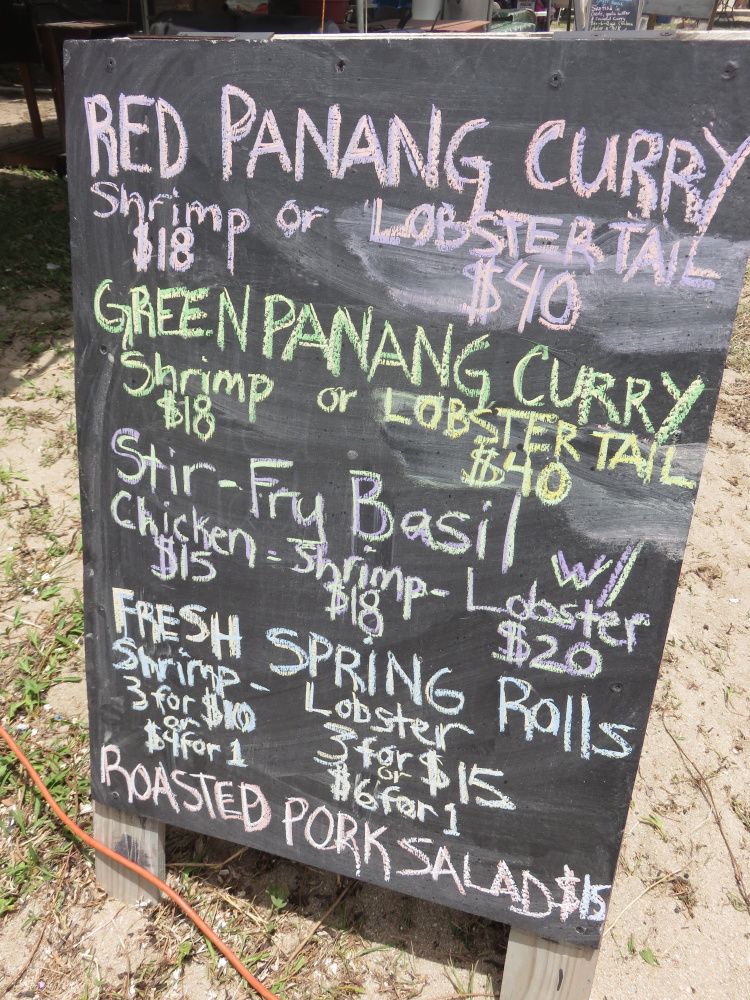 RED PANANG CURRY
Shrimp or LOBSTER TAIL
$18 $40
GREEN PANANG CURRY
Shrimp or LOBSTER TAIL
$18 $40
Stir-Fry Basil w/
Chicken - Shrimp - Lobster
$15 $18 $20
FRESH SPRING Rolls
Shrimp - Lobster
3 for $10 3 for $15
or or
$4 for 1 $6 for 1
ROASTED PORK SALAD $15